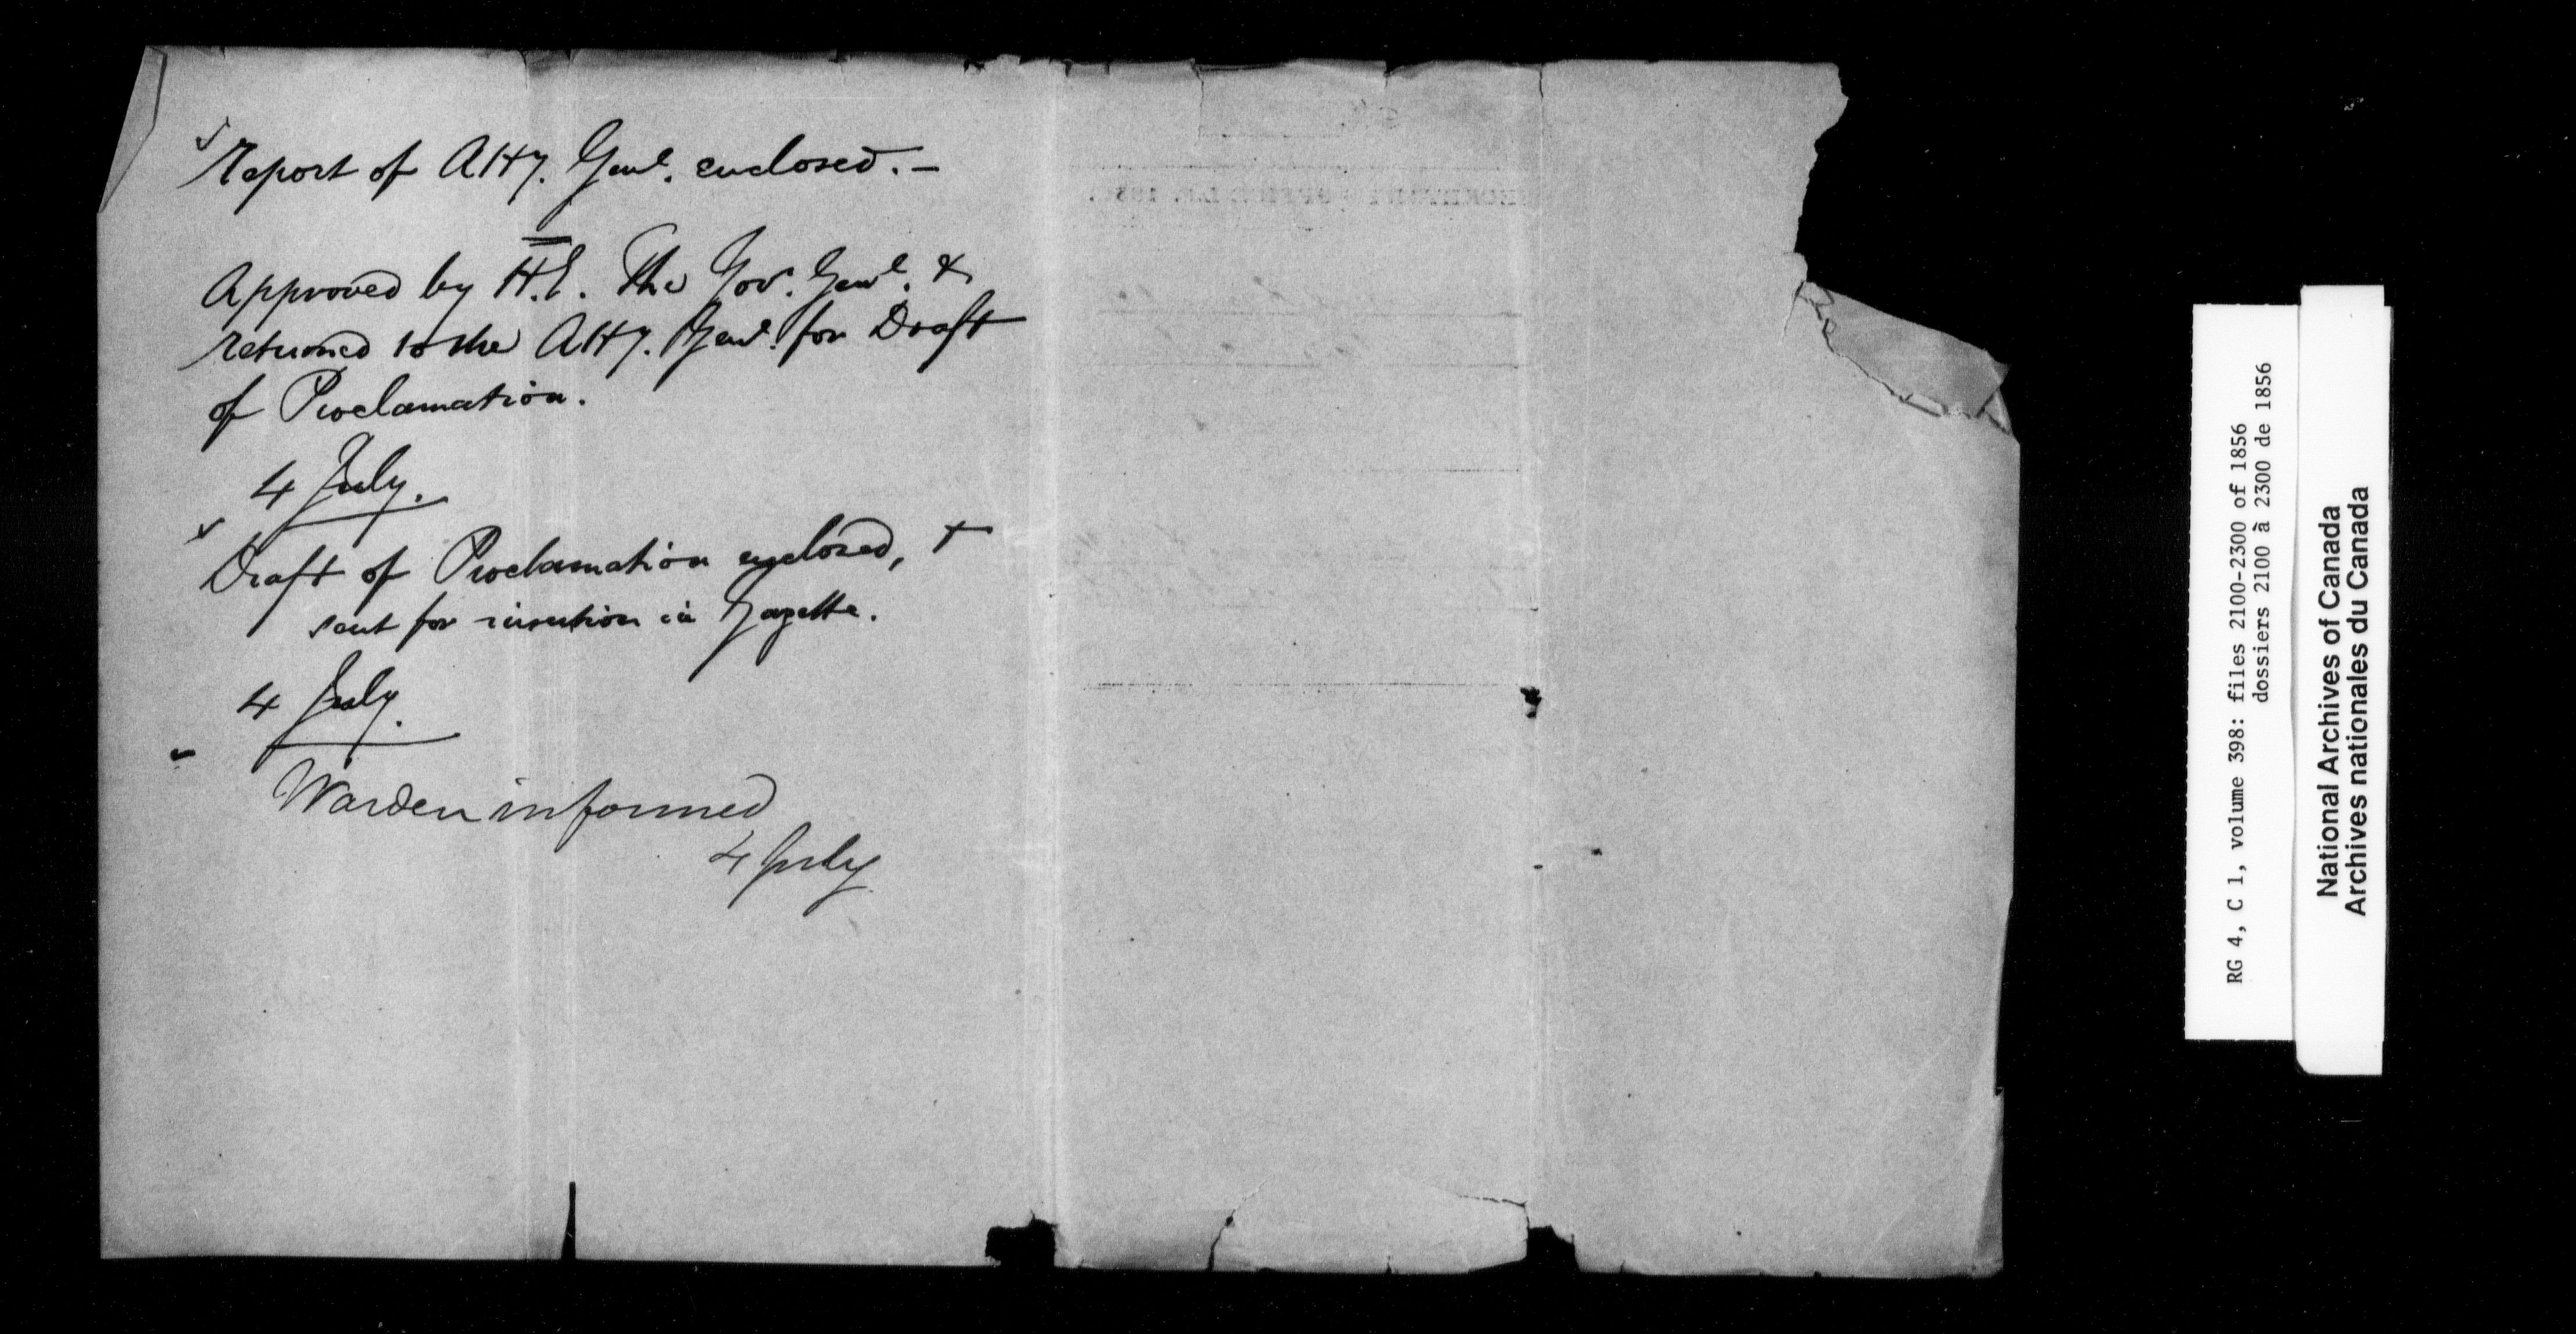 Report of Atty. Genl. enclosed. –
Approved by H.E. The Gov. Genl. &
returned to the Atty. Genl. for Draft
of Proclamation.
4 July.
Draft of Proclamation enclosed, +
sent for insertion in Gazette.
4 July.
Warden informed
4 July
RG 4, C 1, volume 398: files 2100-2300 of 1856
dossiers 2100 à 2300 de 1856
National Archives of Canada
Archives nationales du Canada